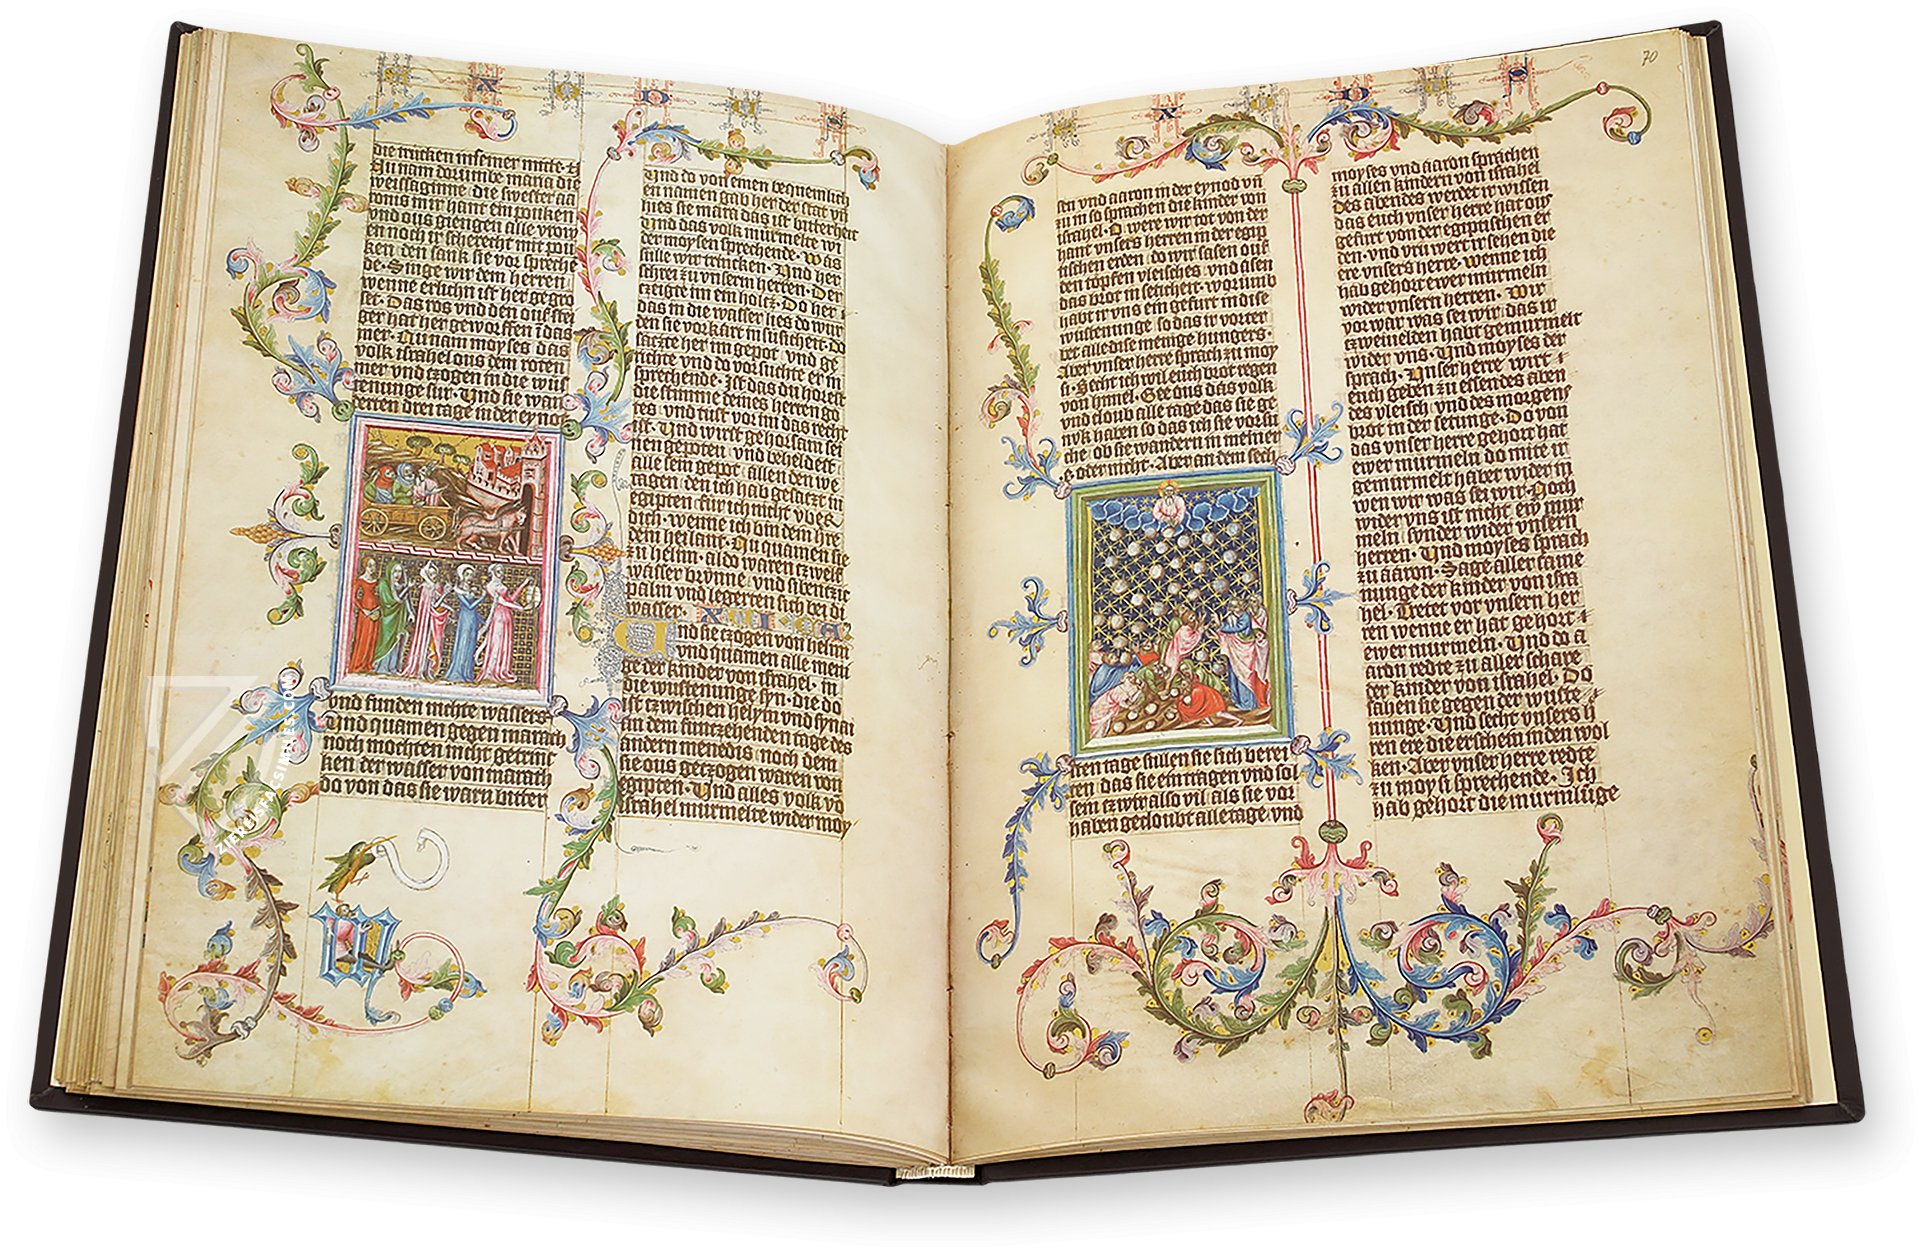 die trucken in seiner mitte · Z
Zu nam dorumbe maria die
weissaginne die swester aa
rons mit hant ein pouken
vnd ous giengen alle vrow
en noch ir scherecht mit pou
ken den sank sie vor spreche
de · Singe wir dem herren
wenne erlichn ist her gegro
set · Das ros vnd den ouf stei
ger hat her geworffen i das
mer · Zu nam moyses das
volk israhel ous dem roten
mer vnd czogen in die wu
tenunge sur · Vnd sie wan
erten drei tage in der eyno
vnd funden nichte wassers
Vnd quamen gegen marach
noch mochten nicht getrin
ken der wasser von marath
do von das sie warn bitter
Vnd do von einen bequemlich
en nam gab her der stat vn
hies sie mara das ist bitterkeit
Vnd das volk murmelte wi
der moysen sprechende · Was
sulle wir trinken · Vnd her
schrei zu vnserm herren · Der
czeigte im ein holcz · Do her
das in die wasser lies do wur
den sie vorkart in sussicheit · Do
saczte her im gepot vnd ge
richte vnd do vorsuchte er in
sprechende · Ist das du horest
die stimme deines herren go
tes vnd tust vor im das recht
ist · Vnd wirst gehorsam sei
nen gepoten vnd beheldest
alle sein gepot allen den we
tagen den ich hab gesaczt in
egipten fur ich nicht vber
dich · wenne ich bin dein hre
dein heilant · Zu quamen sie
zu helim · aldo waren zwelf
wasser brunne vnd sibenczig
palm vnd legerten sich bei di
wasser · XVI · CA ·
Vnd sie czogen von helim
vnd quamen alle meni
ge der kinder von israhel · in
die wustenunge syn · die do
ist czwischen helym vnd synai
in dem funfczehenden tage des
andern menedis · noch dem
sie ous geczogen waren von
egipten · Vnd alles volk vo
israhel murmelte wider moy
70
sen vnd aaron in der eynod vn
zu in so sprachen die kinder von
israhel · O were wir tot von der
hant vnsers herren in der egip
tischen erden do wir sasen ouf
den topfen vleisches vnd asen
das brot in setichert · worumb
habt ir vns ein gefurt in dise
wustenunge so das ir vorter
bet alle dise menige hungers ·
Aber vnser herre sprach zu moy
si · Secht ich wil euch brot regen
von himel · Gee ous das volk
vnd cloub alle tage das sie ge
nuk haben so das ich sie vorsu
che ob sie wandern in meiner
e oder nicht · Aber an dem sech
sten tage sullen sie sich berei
ten das sie eintragen vnd sol
sein czwir also vil als sie vor
haben gecloubt alletage vnd
moyses vnd aaron sprachen
zu allen kindern von israhel
Des abendes werdet ir wissen
das euch vnser herre hat ous
gefurt von der egiptischen er
den · vnd vru wert ir sehen die
ere vnsers herre · wenne ich
hab gehort ewer murmeln
wider vnsern herren · Wir
vor war was sei wir das ir
czweinelden habt gemurmelt
wider vns · Vnd moyses der
sprach · Vnser herre wirt
euch geben zu essendes aben
des vleisch vnd des morgens
brot in der setunge · Do von
das vnser herre gehort hat
ewer murmeln do mite ir
gemurmelt habet wider in
wen wir was sei wir · Noch
wider vns ist nicht ewr mur
meln sunder wider vnsern
herren · Vnd moyses sprach
zu aaron · Sage aller same
nunge der kinder von isra
hel · Tretet vor vnsern her
ren wenne er hat gehort
ewer murmeln · Vnd do a
aron redte zu aller schare
der kinder von israhel · Do
sahen sie gegen der wuste
nunge · Vnd secht vnsers h
ren ere die erschein in den wol
ken · Aber vnser herre redte
zu moysi sprechende · Ich
hab gehort die murmlunge
ZIEREIS FACSIMILES.COM